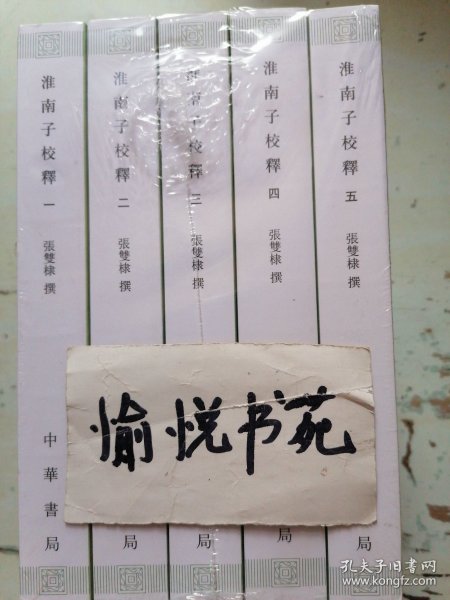 淮南子校釋 一 張雙棣 撰
中華書局
淮南子校釋 二 張雙棣 撰
局
南子校釋 三 張雙棣 撰
局
淮南子校釋 四 張雙棣 撰
局
淮南子校釋 五 張雙棣 撰
局
愉悦书苑
孔夫子旧书网
www.kongfz.com